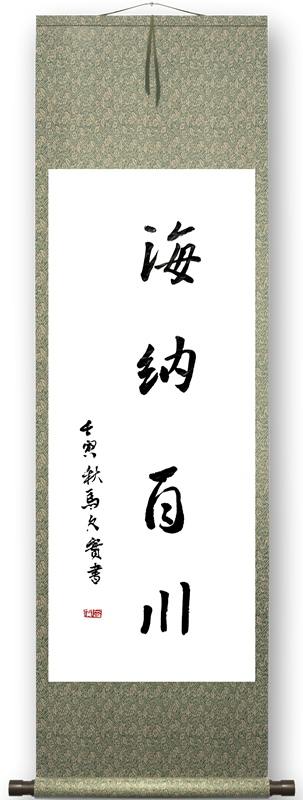 海纳百川
壬寅秋马久宾書